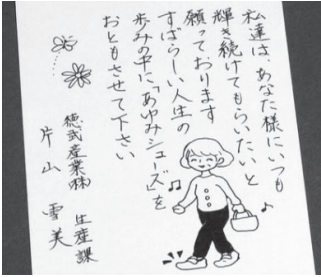 私達は、あなた様にいつも
輝き続けてもらいたいと
願っております
すばらしい人生の
歩みの中に「あゆみシューズ」を
おともさせて下さい
徳武産業㈱ 生産課
片山 雪美